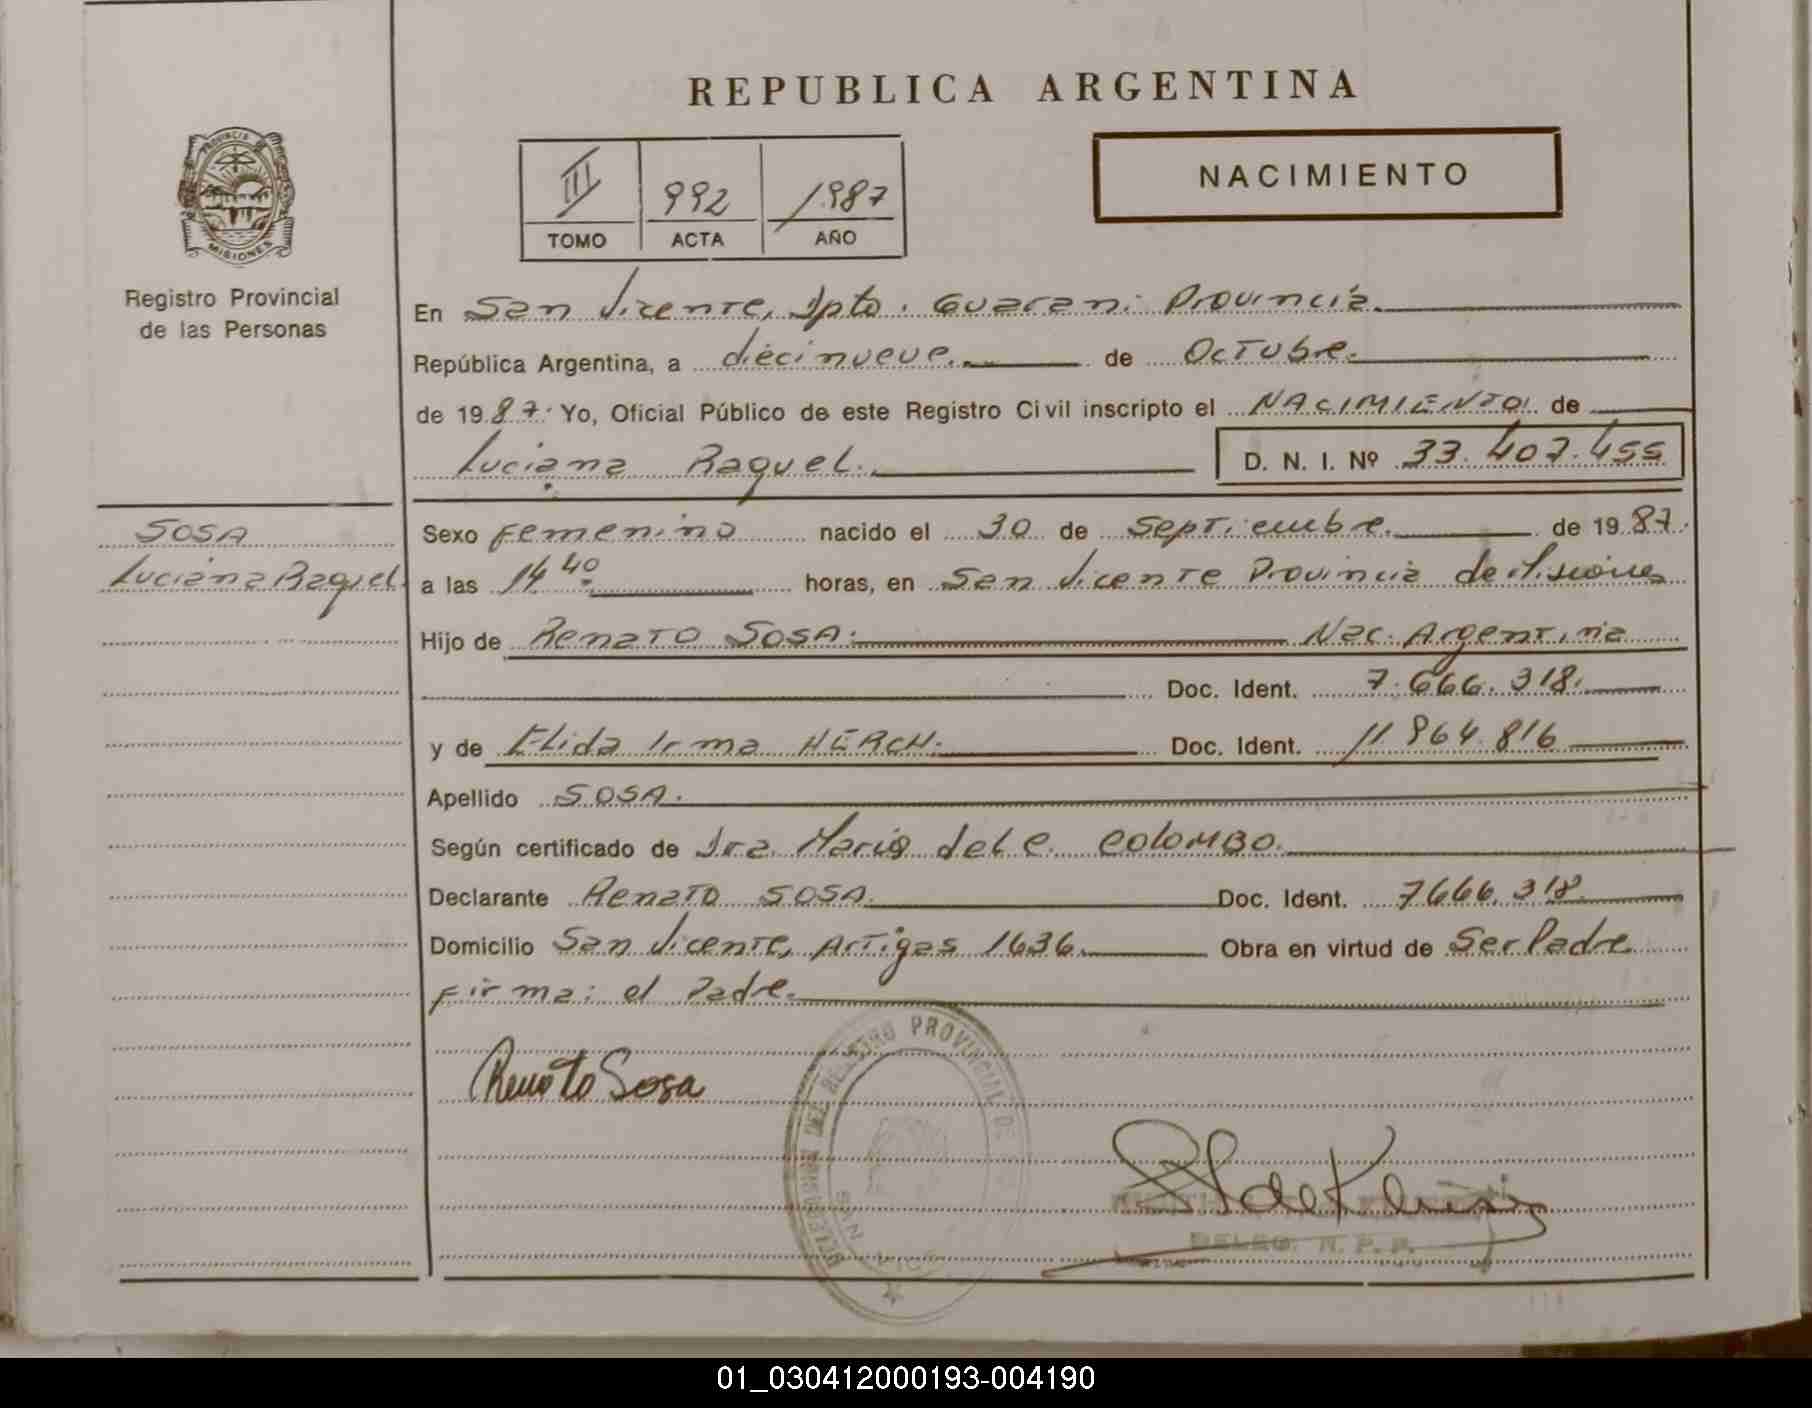 REPUBLICA ARGENTINA
PROVINCIA
MISIONES
Registro Provincial
de las Personas
III 992 1987
TOMO ACTA AÑO
NACIMIENTO
En San Vicente, Dpto. Guarani Provincia
República Argentina, a diecinueve de Octubre
de 1987. Yo, Oficial Público de este Registro Civil inscripto el NACIMIENTO de
Luciana Raquel. D. N. I. Nº 33.407.455
SOSA
Luciana Raquel
Sexo Femenino nacido el 30 de Septiembre. de 1987.
a las 14 40 horas, en San Vicente Provincia de Misiones
Hijo de Renato SOSA. Nac. Argentina
Doc. Ident. 7.666.318.
y de Elida Irma HERCH. Doc. Ident. 11.864.816
Apellido SOSA.
Según certificado de Dra. Maria del C. COLOMBO.
Declarante Renato SOSA. Doc. Ident. 7666.318
Domicilio San Vicente, Artigas 1636. Obra en virtud de Ser Padre
Firma: el Padre.
Renato Sosa
REGISTRO PROVINCIAL DE
SAN VICE
DELEG. R. P. P.
01_030412000193-004190